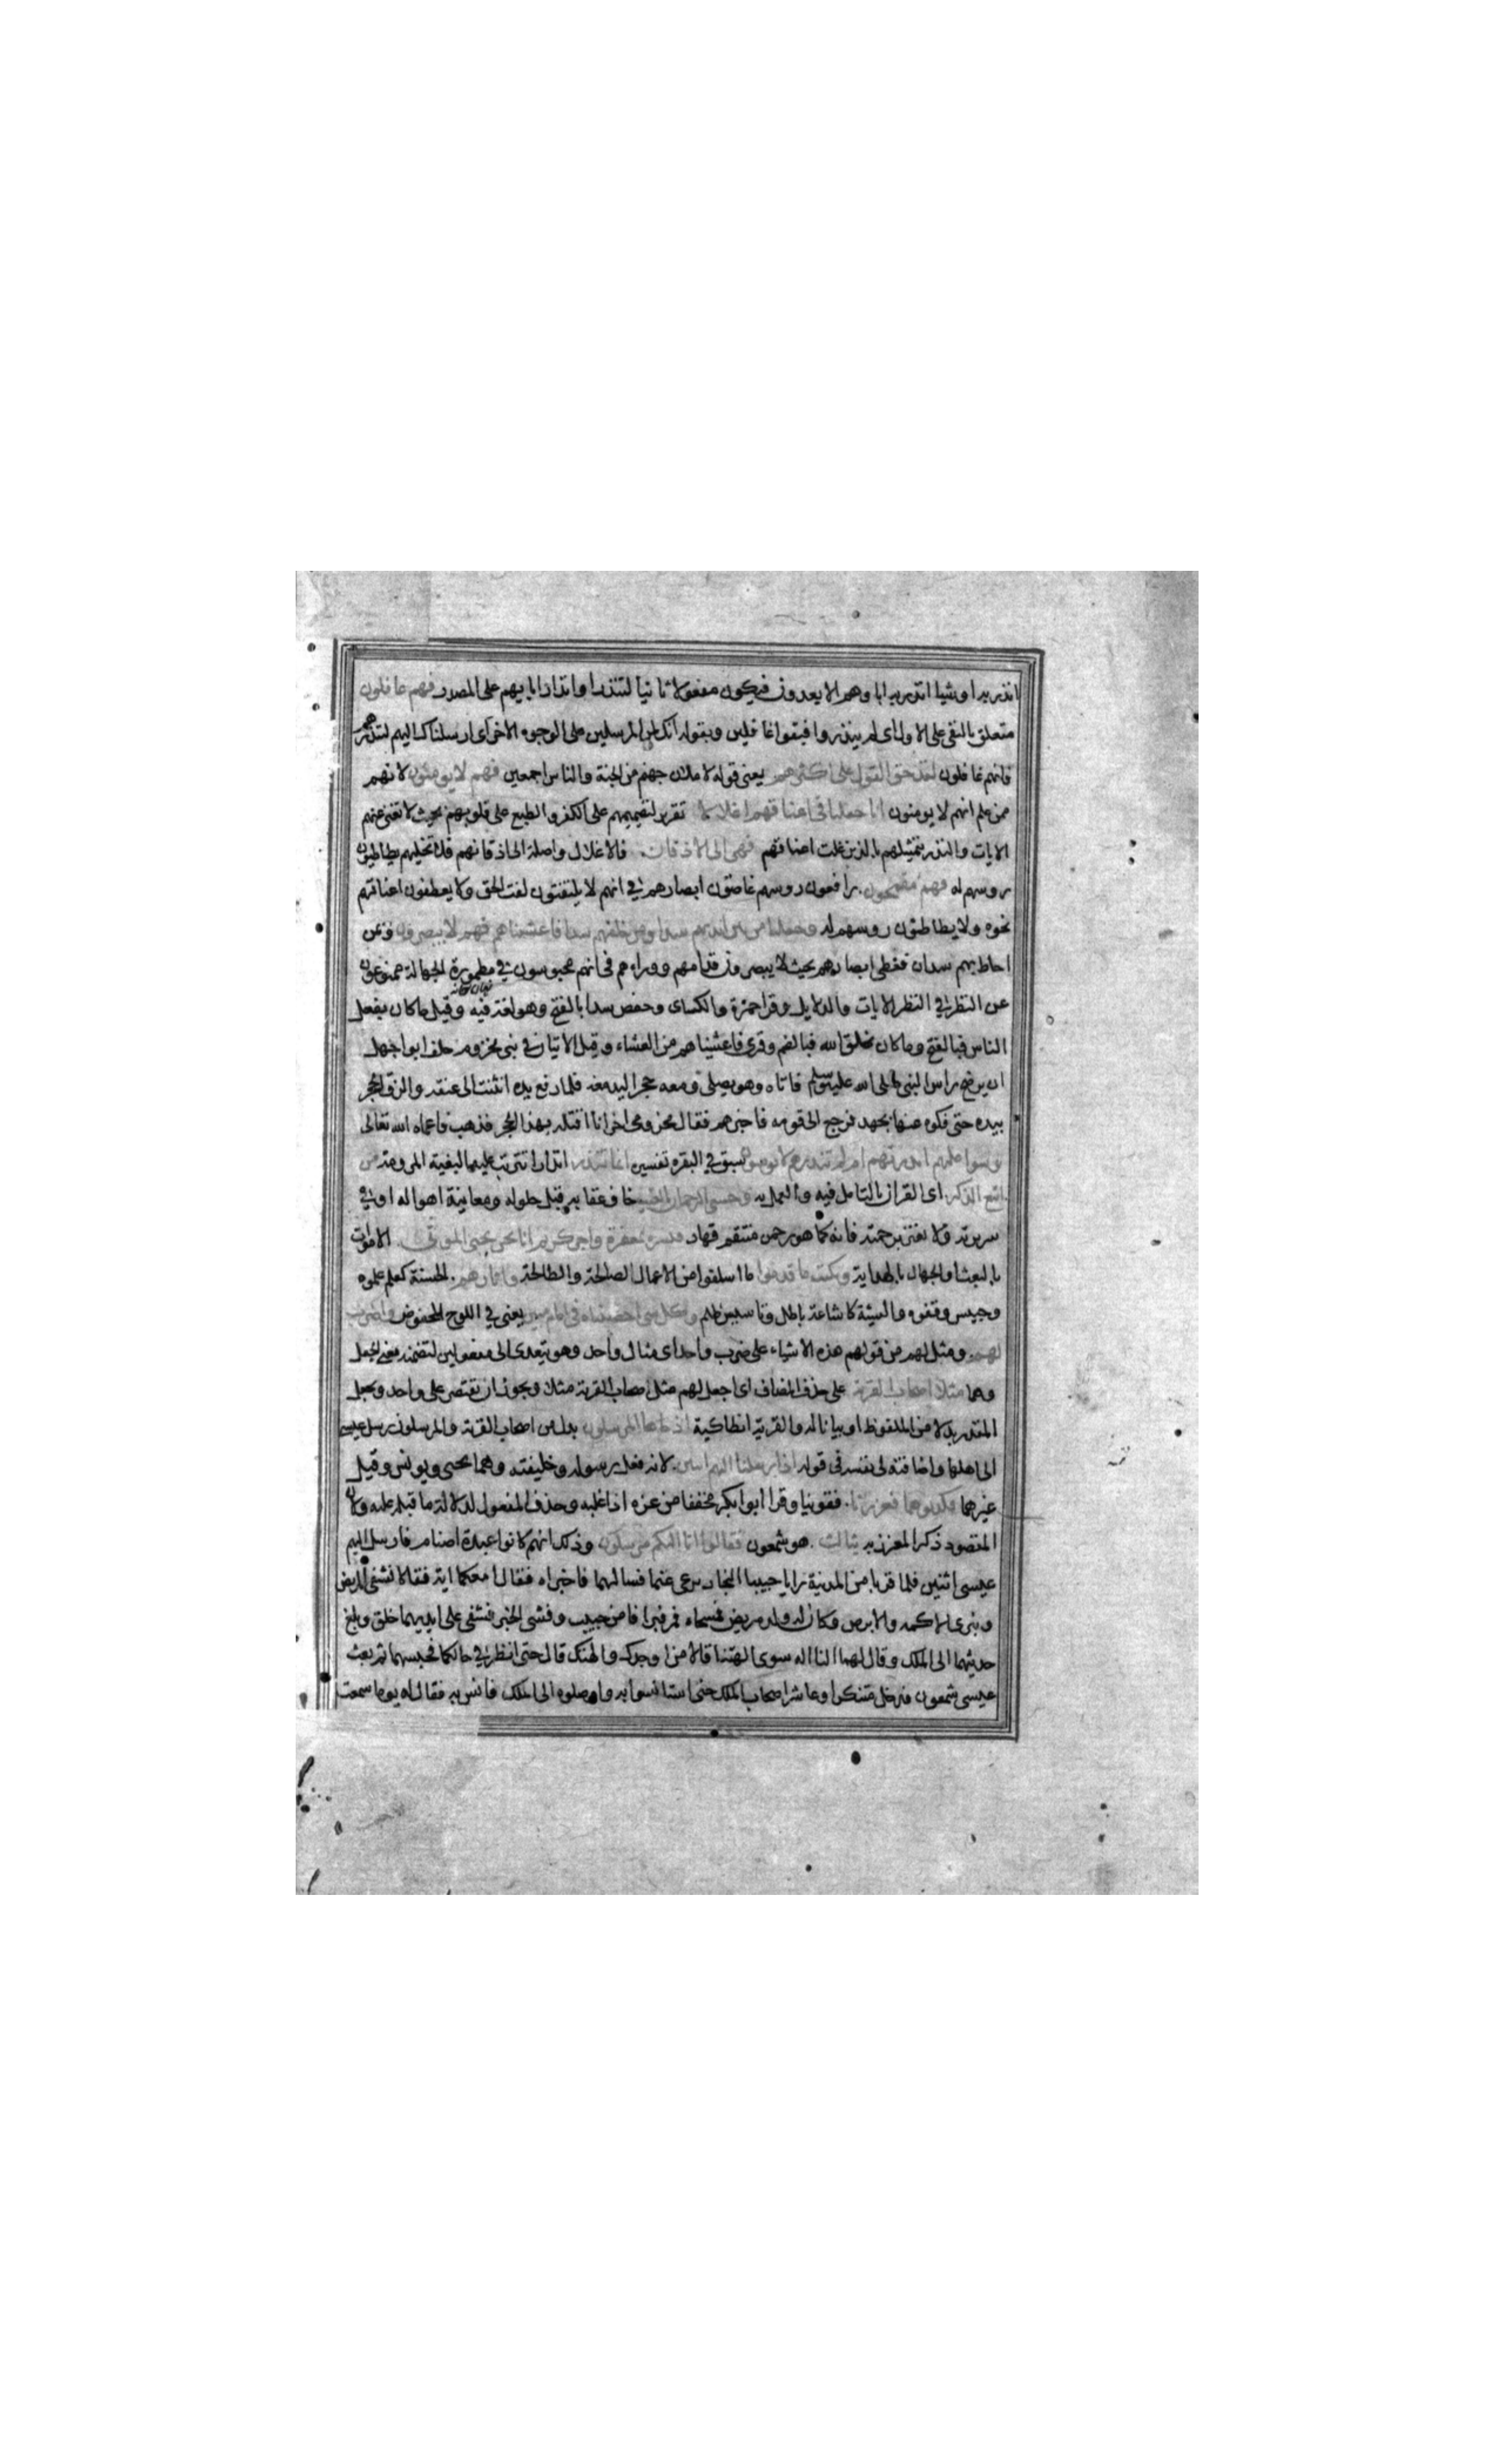 انذر به او شيا انذر به ابا وهم الا بعدون فيكون مفعولا ثانيا لتنذر او انذار ابايهم على المصدر فهم غافلون
متعلق بالنفى على الاول اى لم ينذروا فبقوا غافلين وبقوله انك لمن المرسلين على الوجوه الاخر اى ارسلناك اليهم لتنذرهم
فانهم غافلون لقد حق القول على اكثرهم يعنى قوله لاملان جهنم من الجنة والناس اجمعين فهم لا يومنون لانهم
ممن علم انهم لا يومنون انا جعلنا فى اعناقهم اغلالا تقرير لتصميمهم على الكفر والطبع على قلوبهم بحيث لا تغنى عنهم
الايات والنذر بتمثيلهم بالذين غلت اعناقهم فهى الى الاذقان فالاغلال واصلة الى اذقانهم فلا تخليهم يطاطيون
روسهم له فهم مقمحون رافعون روسهم غاضون ابصارهم فى انهم لا يلتفتون لفت الحق ولا يعطفون اعناقهم
نحوه ولا يطاطئون روسهم له وجعلنا من بين ايديهم سدا ومن خلفهم سدا فاغشيناهم فهم لا يبصرون وبمن
احاط بهم سدان فغطى ابصارهم بحيث لا يبصرون قدامهم ووراءهم فى انهم محبوسون فى مطمورة الجهالة ممنوعون
عن النظر فى النظر الايات والدلايل وقرا حمزة والكساى وحفص سدا بالفتح وهو لغة فيه وقيل ما كان بفعل
الناس فبالفتح وما كان بخلق الله فبالضم وقرى فاعشيناهم من العشاء وقيل الايتان فى بنى مخزوم حلف ابو اجهل
ان يرضخ راس النبى صلى الله عليه وسلم فاتاه وهو يصلى ومعه حجر اليدمغه فلما رفع يده انثنت الى عنقه والزق الحجر
بيده حتى فكوه عنها بجهد فرجع الى قومه فاخبرهم فقال مخزومى اخر انا اقتله بهذا الحجر فذهب فاعماه الله تعالى
وسوا عليهم انذرتهم ام لم تنذرهم لا يومنون سبق فى البقره تفسيره انما تنذر انذارا تترتب عليه البغية المرومة من
اتبع الذكر اى القران بالتامل فيه والعمل به وخشى الرحمان بالغيب خاف عقابه قبل حلوله ومعاينة اهواله او فى
سريرته ولا يغتر برحمته فانه كما هو رحمن منتقم قهار فبشره بمغفرة واجر كريم انا نحن نحيى الموتى الاموات
بالبعث او الجهال بالهداية ونكتب ما قدموا ما اسلفوا من الاعمال الصالحة والطالحة واثارهم الحسنة كعلم علموه
وحبيس وقفوه والسيئة كاشاعة باطل وتاسيس ظلم وكل شى احصيناه فى امام مبين يعنى فى اللوح المحفوض واضرب
لهم ومثل لهم من قولهم هذه الاشياء على ضرب واحد اى مثال واحد وهو يتعدى الى مفعولين لتضمنه معنى الجعل
وهما مثلا اصحاب القرية على حذف المضاف اى اجعل لهم مثل اصحاب القرية مثلا ويجوز ان يقتصر على واحد ويجعل
المقدر بدلا من الملفوظ او بيانا له والقرية انطاكية اذ جاءها المرسلون بدل من اصحاب القرية والمرسلون رسل عيسى
الى اهلها واضافته الى نفسه فى قوله اذ ارسلنا اليهم اثنين لانه فعل رسوله وخليفته وهما يحيى ويونس وقيل
غيرهما فكذبوهما فعززنا فقوينا وقرا ابوا بكر مخففا من عزه اذا غلبه وحذف المفعول لدلالة ما قبله عليه ولان
المقصود ذكر المعزز به بثالث هو شمعون فقالوا انا اليكم مرسلون وذلك انهم كانوا عبدة اصنام فارسل اليهم
عيسى اثنين فلما قربا من المدينة رايا حبيبا النجار يرعى غنما فسالهما فاخبراه فقال امعكما اية فقالا نشفى المريض
ونبرى الاكمه والابرص وكان له ولد مريض فمسحاه فبرا فامن حبيب وفشى الخبر فشفى على ايديهما خلق وبلغ
حديثهما الى الملك وقال لهما النا اله سوى الهتنا قالا من اوجدك والهتك قال حتى انظر فى حالكما فحبسهما ثم بعث
عيسى شمعون فدخل متنكرا وعاشر اصحاب الملك حتى استانسوا به واوصلوه الى الملك فانس به فقال له يوما سمعت